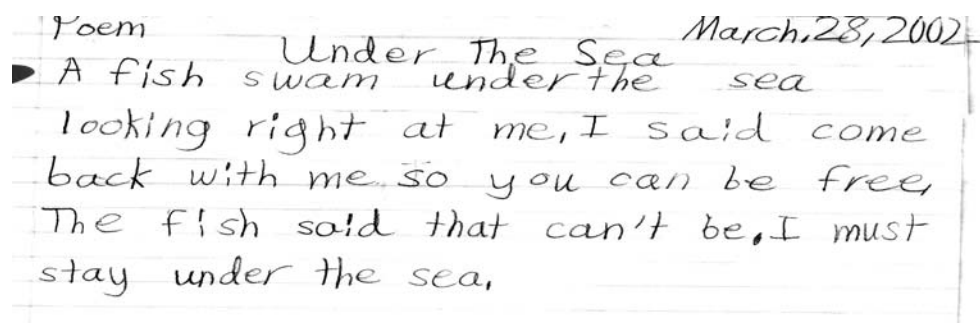 Poem March,28,2002
Under The Sea
A fish swam under the sea
looking right at me, I said come
back with me so you can be free,
The fish said that can't be. I must
stay under the sea,